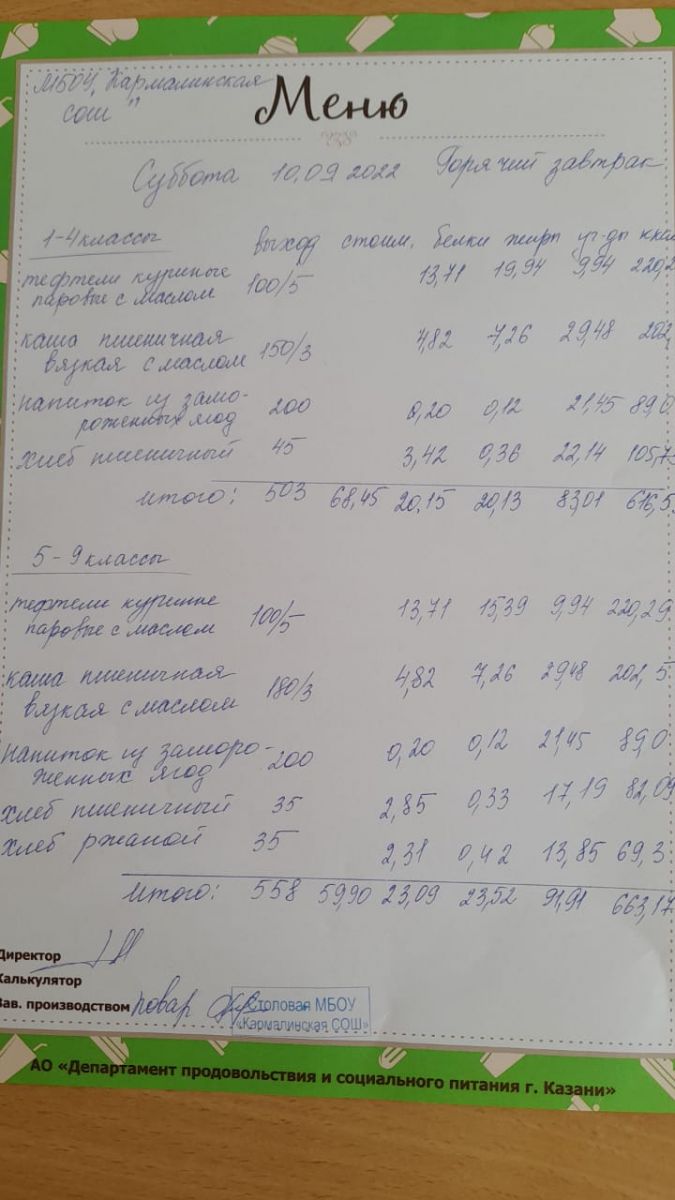 МБОУ "Кармалинская
СОШ"
Меню
Суббота 10.09.2022 Горячий завтрак
1-4 классы выход стоим. белки жиры уг-ды ккал
тефтели куриные
паровые с маслом 100/5 13,71 19,94 9,94 220,2
каша пшеничная
вязкая с маслом 150/3 4,82 7,26 29,48 202,
напиток из замо-
роженных ягод 200 0,20 0,12 21,45 89,0
хлеб пшеничный 45 3,42 0,36 22,14 105,75
итого: 503 68,45 20,15 20,13 83,01 616,5
5-9 классы
тефтели куриные
паровые с маслом 100/5 13,71 15,39 9,94 220,29
каша пшеничная
вязкая с маслом 180/3 4,82 7,26 29,48 202,5
напиток из заморо-
женных ягод 200 0,20 0,12 21,45 89,0
хлеб пшеничный 35 2,85 0,33 17,19 82,09
хлеб ржаной 35 2,31 0,42 13,85 69,3
итого: 558 59,90 23,09 23,52 91,91 663,17
Директор
Калькулятор
Зав. производством повар
Столовая МБОУ
«Кармалинская СОШ»
АО «Департамент продовольствия и социального питания г. Казани»